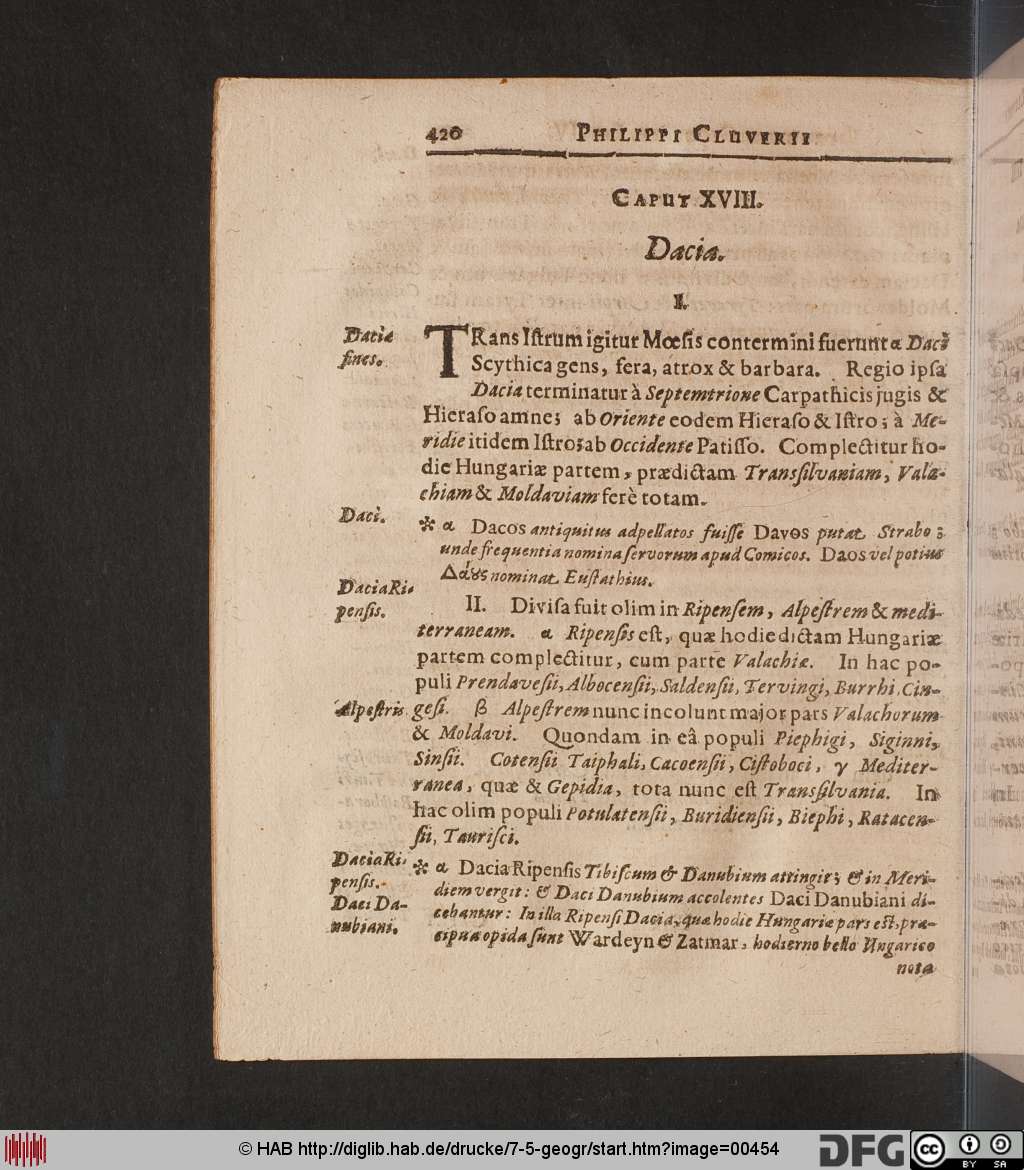 420 PHILIPPI CLUVERII
CAPUT XVIII.
Dacia.
I.
Daciæ
fines.
TRans Iſtrum igitur Mœſis contermini fuerunt α Daci
Scythica gens, fera, atrox & barbara. Regio ipſa
Dacia terminatur à Septemtrione Carpathicis jugis &
Hieraſo amne; ab Oriente eodem Hieraſo & Iſtro; à Me-
ridie itidem Iſtro; ab Occidente Patiſſo. Complectitur ho-
die Hungariæ partem, prædictam Transſilvaniam, Vala-
chiam & Moldaviam ferè totam.
Daci.
✻ α Dacos antiquitus adpellatos fuiſſe Davos putat Strabo;
unde frequentia nomina ſervorum apud Comicos. Daos vel potius
Δάȣς nominat Euſtathius.
Dacia Ri-
penſis.
II. Diviſa fuit olim in Ripenſem, Alpeſtrem & medi-
terraneam. α Ripenſis eſt, quæ hodie dictam Hungariæ
partem complectitur, cum parte Valachiæ. In hac po-
puli Prendaveſii, Albocenſii, Saldenſii, Tervingi, Burrhi, Cin-
Alpeſtris
geſi. β Alpeſtrem nunc incolunt major pars Valachorum
& Moldavi. Quondam in eâ populi Piephigi, Siginni,
Sinſii. Cotenſii Taiphali, Cacoenſii, Ciſtoboci, γ Mediter-
ranea, quæ & Gepidia, tota nunc eſt Transſilvania. In
hac olim populi Potulatenſii, Buridienſii, Biephi, Ratacen-
ſii, Tauriſci.
Dacia Ri-
penſis.
Daci Da-
nubiani.
✻ α Dacia Ripenſis Tibiſcum & Danubium attingit; & in Meri-
diem vergit: & Daci Danubium accolentes Daci Danubiani di-
cebantur: In illa Ripenſi Dacia, quæ hodie Hungariæ pars eſt, præ-
cipua opida ſunt Wardeyn & Zatmar, hodierno bello Ungarico
nota
© HAB http://diglib.hab.de/drucke/7-5-geogr/start.htm?image=00454
DFG
cc
BY SA